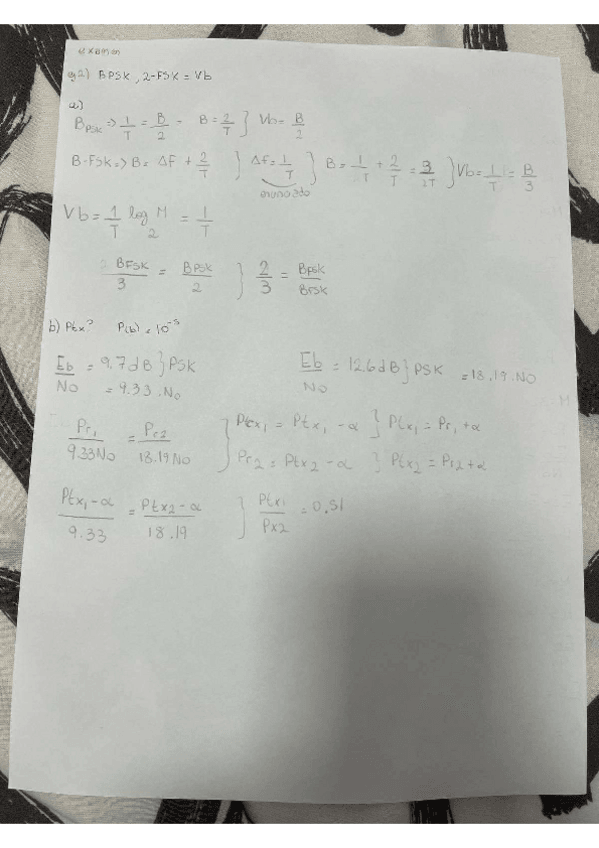 ej2) BPSK, 2-FSK = Vb
a)
BPSK => 1/T = B/2 - B = 2/T } Vb = B/2
B-FSK => B = Δf + 2/T } Δf = 1/T } B = 1/T + 2/T = 3/T } Vb = 1/T = B/3
enunciado
Vb = 1/T log2 M = 1/T
BFSK/3 = BPSK/2 } 2/3 = BPSK/BFSK
b) Ptx? P(b) = 10^-5
Eb/No = 9.7dB } PSK Eb/No = 12.6dB } PSK = 18.19.NO
= 9.33.No
Pr1/9.33NO = Pr2/18.19NO } Prx1 = Ptx1 - α } Ptx1 = Pr1 + α
Pr2 = Ptx2 - α } Ptx2 = Pr2 + α
Ptx1 - α/9.33 = Ptx2 - α/18.19 } Ptx1/Px2 = 0,51